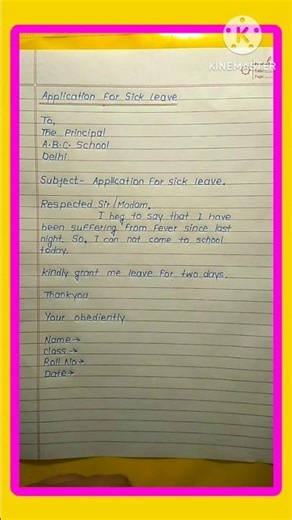 KINEMASTER
Page
Application for Sick Leave
To,
The Principal
A.B.C. School
Delhi
Subject- Application For sick leave.
Respected Sir/Madam,
I beg to say that I have
been suffering from Fever since last
night. So, I can not come to school
today.
Kindly grant me leave for two days.
Thankyou
Your obediently
Name→
class→
Roll No→
Date→